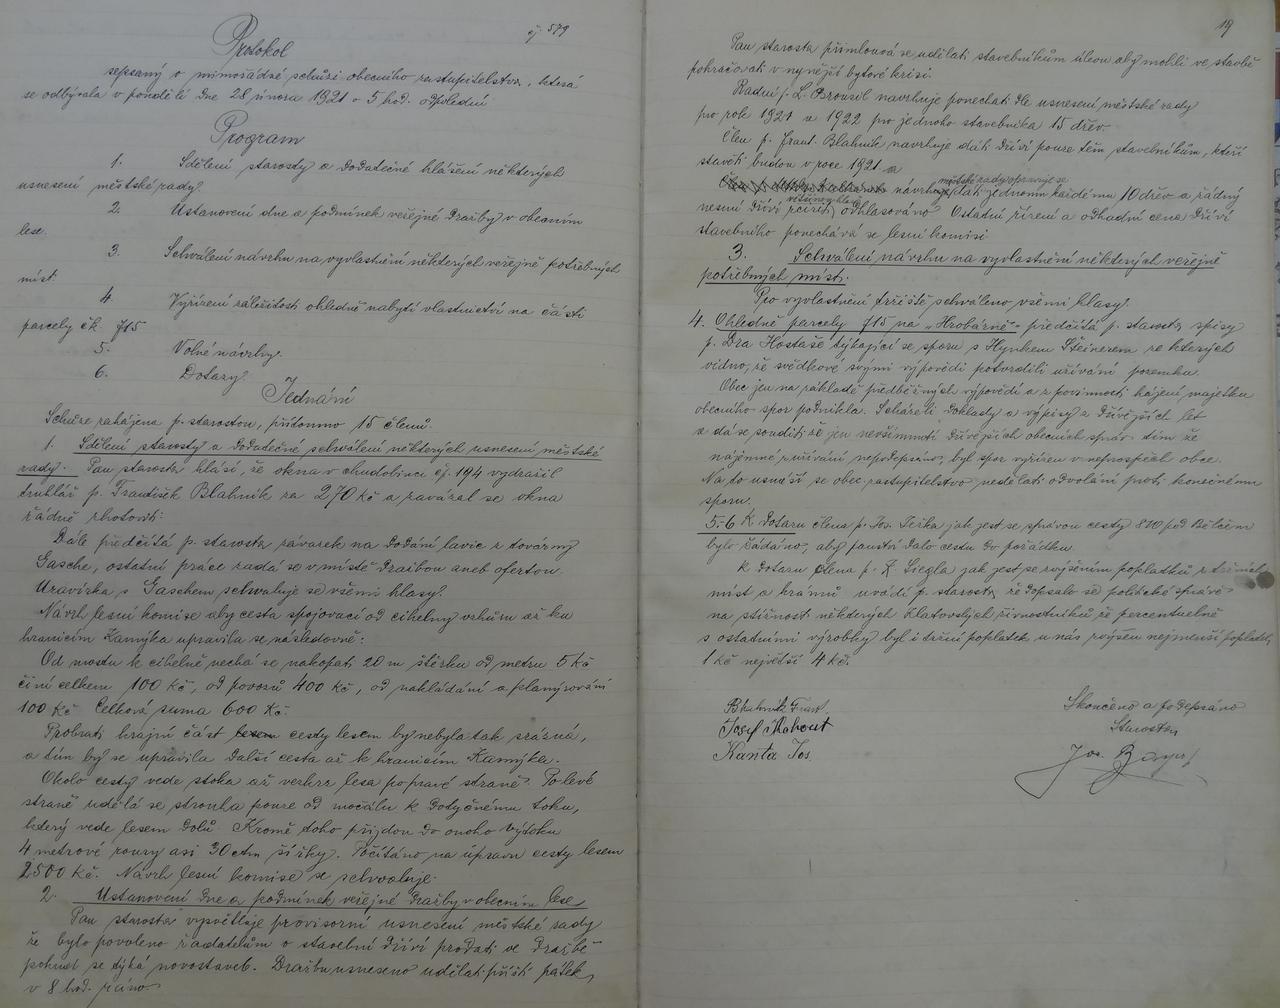 čj. 579
Protokol
sepsaný o mimořádné schůzi obecního zastupitelstva, která
se odbývala v pondělí dne 28 února 1921 o 5 hod. odpolední
Program
1. Sdělení starosty a dodatečné hlášení některých
usnesení městské rady.
2. Ustanovení dne a podmínek veřejné dražby v obecním
lese.
3. Schválení návrhu na vyvlastnění některých veřejně potřebných
míst.
4. Vyřízení záležitosti ohledně nabytí vlastnictví na části
parcely čk. 715
5. Volné návrhy.
6. Dotazy.
Jednání
Schůze zahájena p. starostou, přítomno 15 členů.
1. Sdělení starosty a dodatečné schválení některých usnesení městské
rady. Pan starosta hlásí, že okna v chudobinci čp. 194 vydražil
truhlář p. František Blahník za 270 Kč a zavázal se okna
řádně zhotoviti.
Dále předčítá p. starosta závazek na dodání lavic z továrny
Gasche, ostatní práce zadá se v místě dražbou aneb ofertou.
Uzavírka s Gaschem schvaluje se všemi hlasy.
Návrh lesní komise aby cesta spojovací od cihelny vzhůru až ku
hranicím Kamýka upravila se následovně:
Od mostu k cihelně nechá se nakopati 20 m štěrku od metru 5 Kč
činí celkem 100 Kč, od povozů 400 Kč, od nakládání a planýrování
100 Kč Celková suma 600 Kč.
Probrati krajní část lesem cesty lesem by nebyla tak srázná,
a tím by se upravila další cesta až k hranicím Kamýka.
Okolo cesty vede stoka až vzhůru lesa po pravé straně. Po levé
straně udělá se strouha pouze od močálu k dotyčnému toku,
který vede lesem dolů. Kromě toho přijdou do onoho výtoku
4 metrové roury asi 30 ctm šířky. Počítáno na úpravu cesty lesem
2500 Kč. Návrh lesní komise se schvaluje.
2. Ustanovení dne a podmínek veřejné dražby v obecním lese.
Pan starosta vysvětluje provisorní usnesení městské rady
že bylo povoleno žadatelům o stavební dříví prodati ve dražbě
pokud se týká novostaveb. Dražbu usneseno udělati příští pátek,
v 8 hod. ráno.
19
Pan starosta přimlouvá se udělati stavebníkům úlevu aby mohli ve stavbě
pokračovati v nynější bytové krisi.
Radní p. L. Brousil navrhuje ponechati dle usnesení městské rady
pro rok 1921 a 1922 pro jednoho stavebníka 15 dřev.
Člen p. Frant. Blahník navrhuje dáti dříví pouze těm stavebníkům, kteří
stavěti budou v roce 1921. a
městské rady opravuje se
návrh dáti jednomu každému 10 dřev a žádný
většinou hlasů
nesmí dříví zciziti, odhlasováno. Ostatní řízení a odhadní cena dříví
stavebního ponechává se lesní komisi
3. Schválení návrhu na vyvlastnění některých veřejně
potřebných míst.
Pro vyvlastnění tržiště schváleno všemi hlasy.
4. Ohledně parcely 715 na „Hrobárně" předčítá p. starosta spisy
p. Dra Hostaše týkající se sporu s Hynkem Steinerem ze kterých
vidno, že svědkové svými výpověďmi potvrdili užívání pozemku.
Obec jen na základě předběžných výpovědí a z povinnosti hájení majetku
obecního spor podnikla. Scházeli doklady a výpisy z dřívějších let
a dá se souditi že jen nevšímavostí dřívějších obecních správ tím že
nájemné z užívání nepodepsáno, byl spor vyřízen v neprospěch obce.
Na to usnáší se obec. zastupitelstvo nedělati odvolání proti konečnému
sporu.
5-6 K dotazu člena p. Jos. Teška jak jest se správou cesty 810 pod Bělčem
bylo žádáno, aby panství dalo cestu do pořádku.
K dotazu člena p. Z. Siegla jak jest se zvýšením poplatků z tržních
míst a krámů uvádí p. starosta, že dopsalo se politické správě
na stížnost některých klatovských živnostníků že percentuelně
s ostatními výrobky byl i tržní poplatek u nás zvýšen nejmenší poplatek
1 kč největší 4 kč.
Blahník Frant.
Josef Kohout
Kanta Jos.
Skončeno a podepsáno
Starosta
Jos.